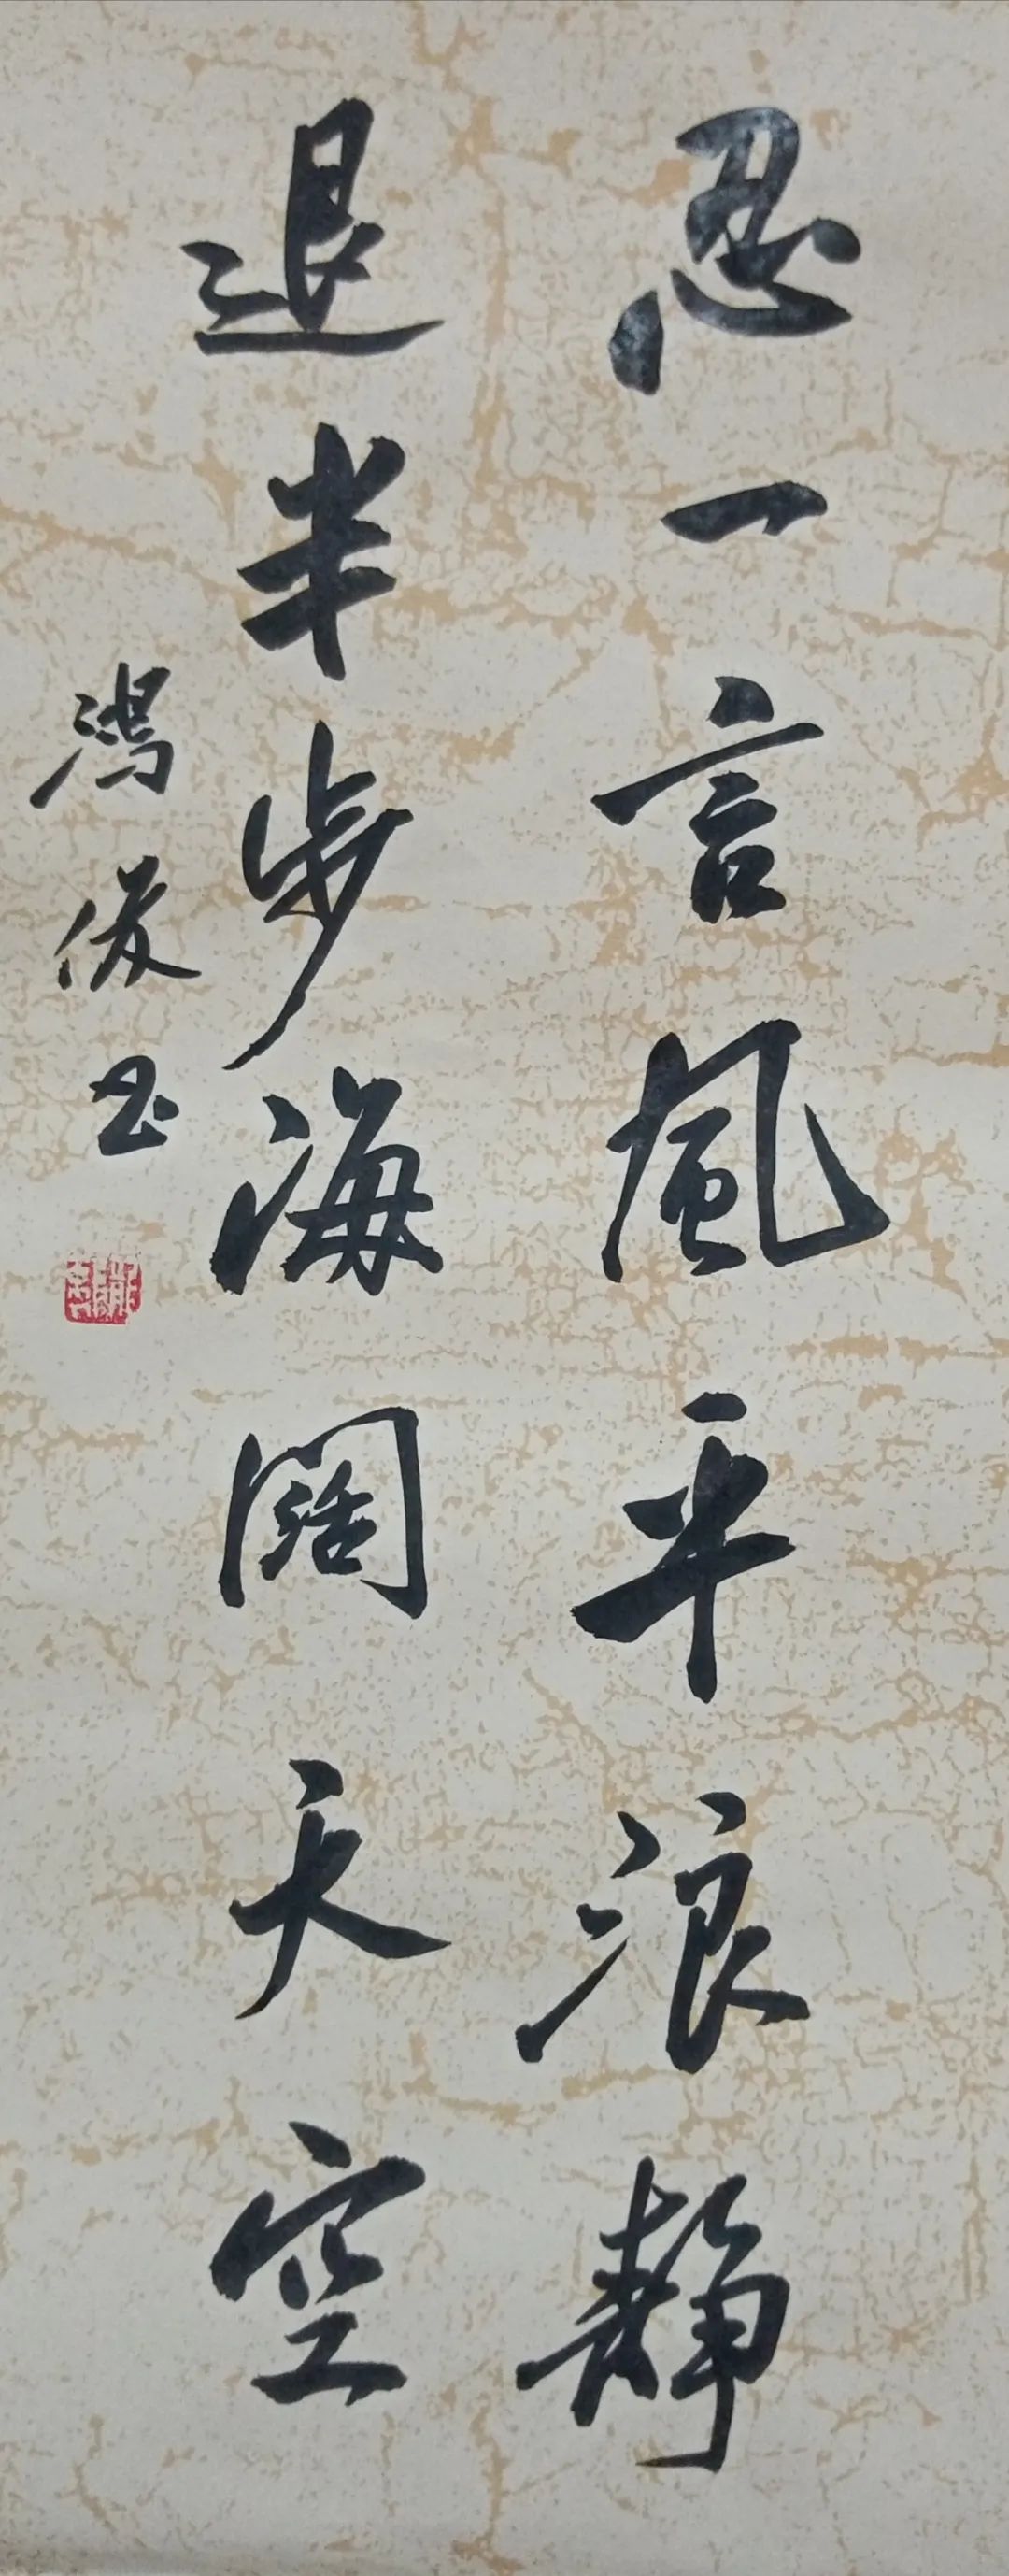 忍一言風平浪靜
退半步海闊天空
鴻俊书